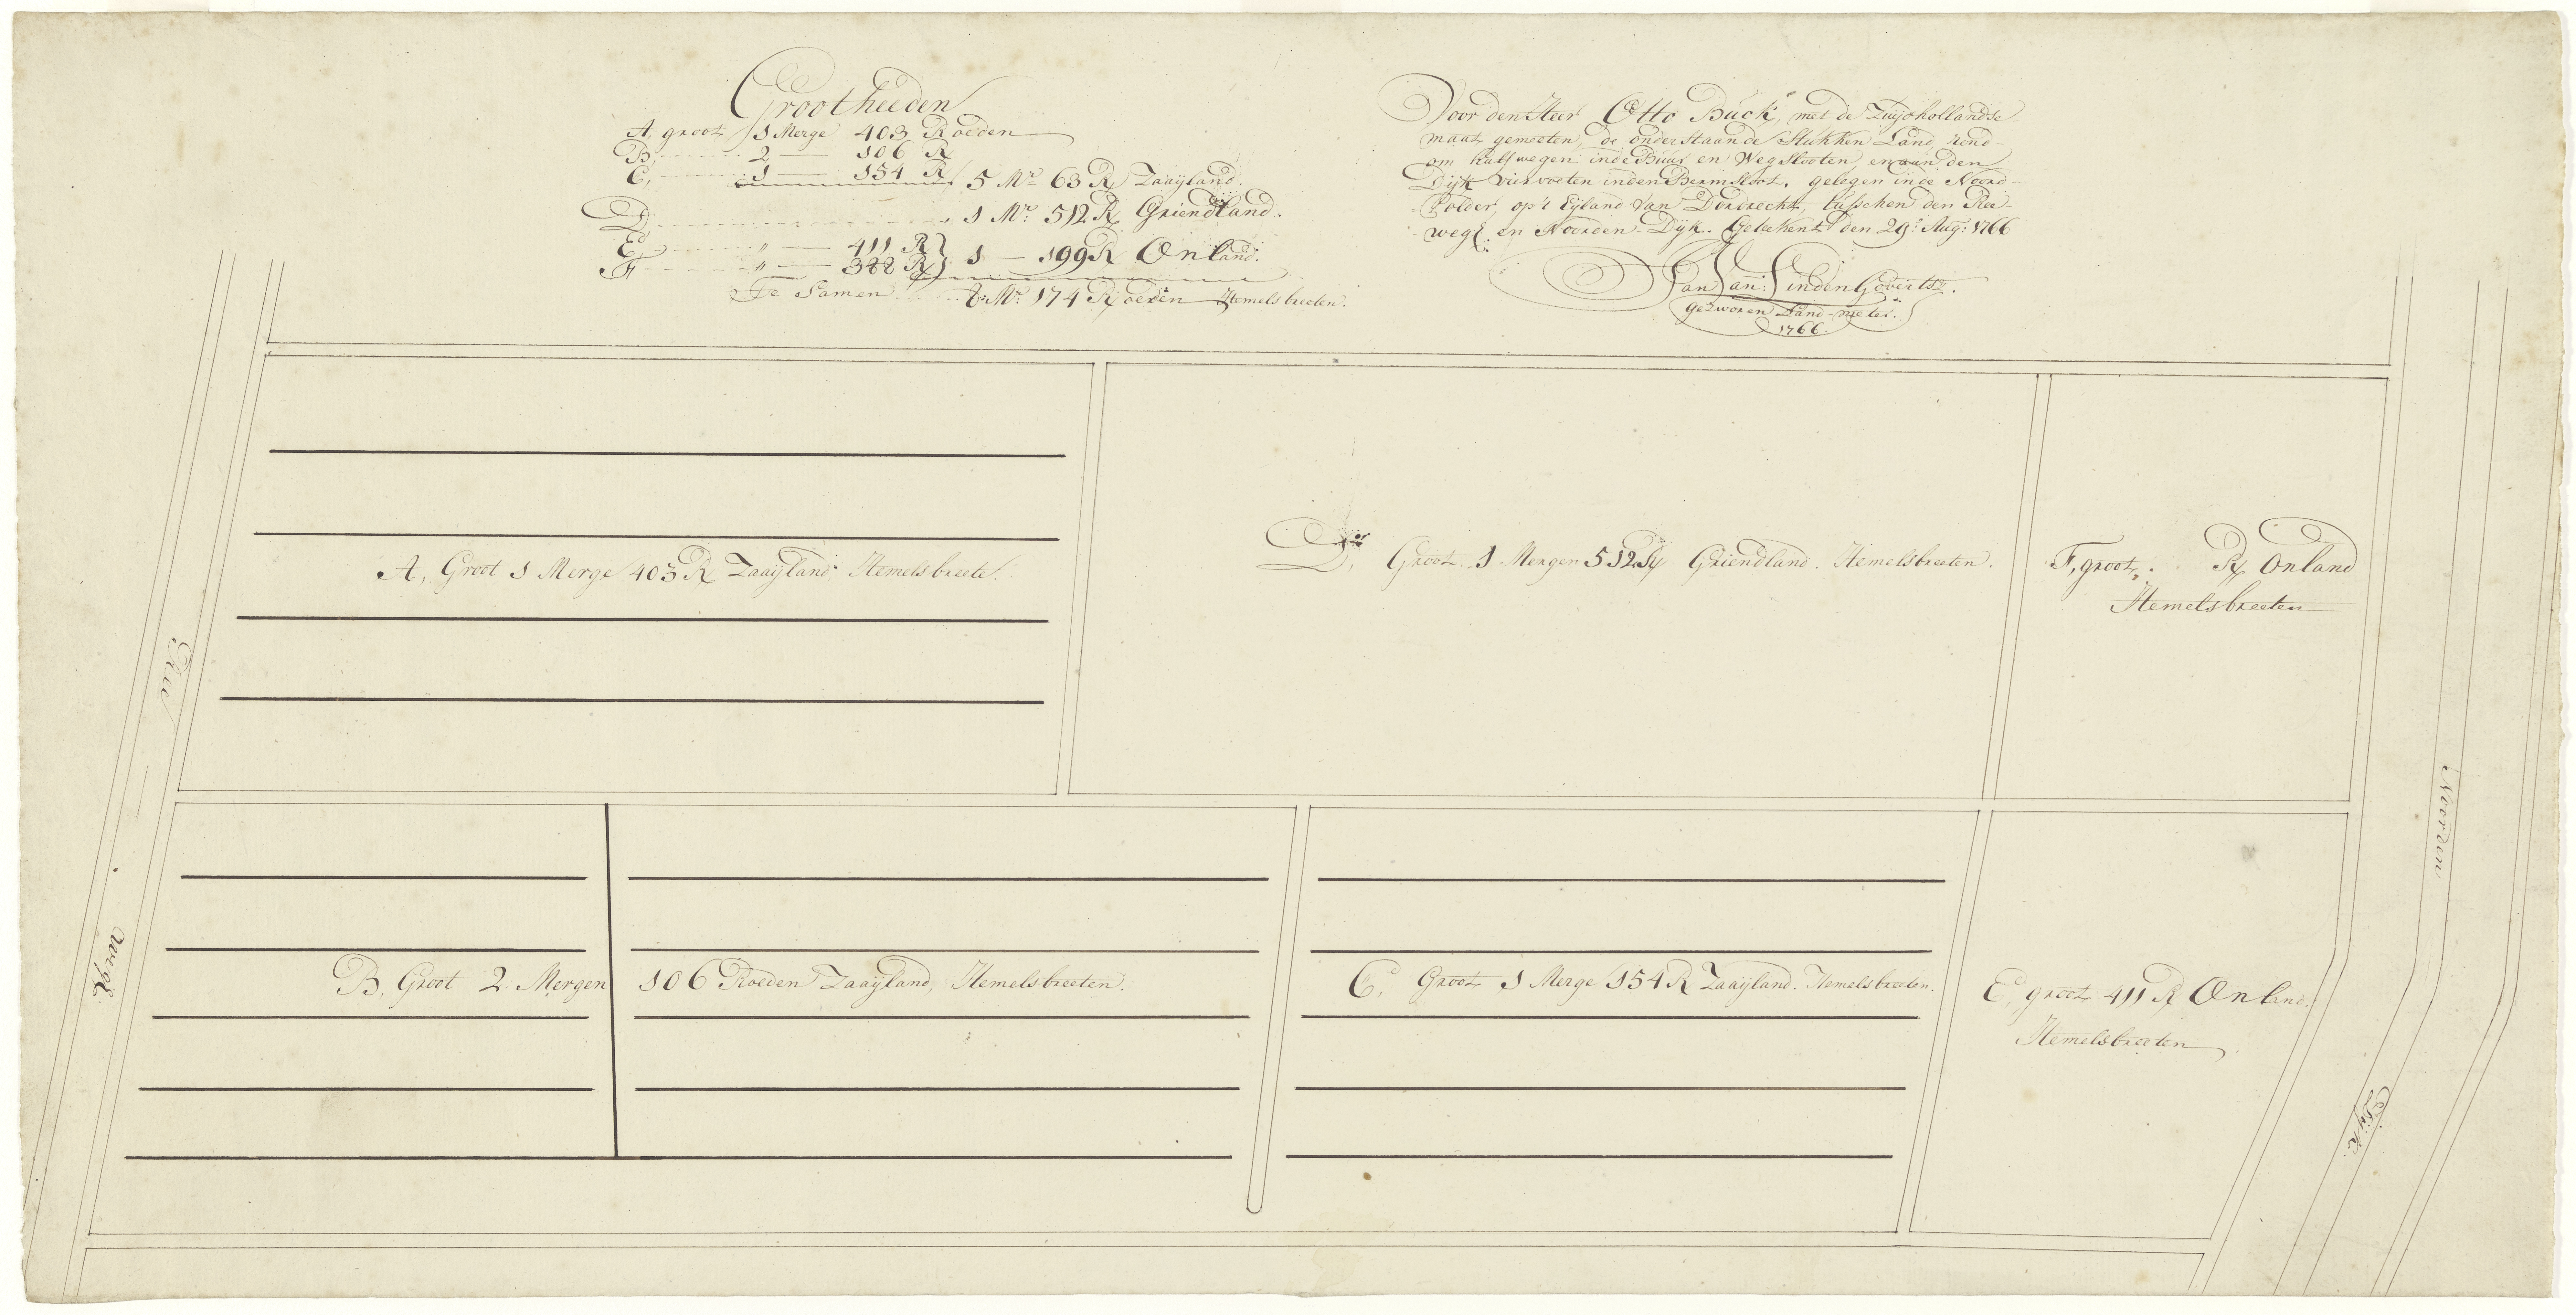 Grootheeden
A, groot 1 Merge 403 Roeden
B, 2 — 106 R
C, 1 — 154 R 5 Mr 63 R Zaaijland.
D, 1 Mr. 512 R Griendland.
E, " — 411 R
F " — 388 R } 1 — 199 R Onland.
Te Samen 8 Mr. 174 Roeden Hemelsbreeten.
Voor den Heer Otto Buck, met de Zuijdhollandse
maat gemeeten, de onderstaande Stukken Land, rond-
om halfwegen inde Buur en Wegslooten, en aan den
Dijk viervoeten inden Bermsloot, gelegen inde Noord-
Polder, op't Eijland van Dordrecht, tusschen den Ree-
wegt en Noorden Dijk. Getekent den 29e. Aug: 1766
Jan Van: Linden Govertsz.
gezworen Land-meter.
1766.
A, Groot 1 Merge 403 R Zaaijland Hemelsbreete.
D, Groot 1 Mergen 512 R Griendland. Hemelsbreeten.
F, groot, R Onland
Hemelsbreeten
Ree
wegt
B, Groot 2 Mergen 106 Roeden Zaaijland, Hemelsbreeten.
C, Groot 1 Merge 154 R Zaaijland. Hemelsbreeten.
E, groot 411 R Onland.
Hemelsbreeten
Noorden
Dijk.